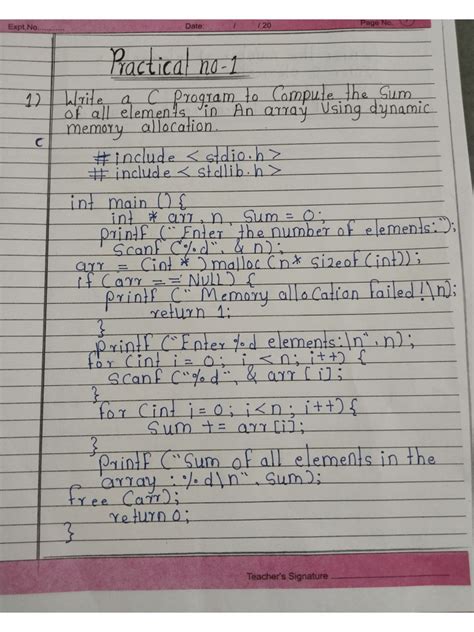 Expt.No. ............ Date: / / 20 Page No.
Practical no-1
1) Write a C Program to Compute the Sum
of all elements in An array Using dynamic
memory allocation.
C
#include <stdio.h>
#include <stdlib.h>
int main () {
int * arr, n, Sum = 0;
printf ("Enter the number of elements:");
Scanf ("%d", & n);
arr = (int *) malloc (n* sizeof (int));
if (arr == NULL) {
printf ("Memory allocation failed!\n);
return 1;
}
printf ("Enter %d elements:\n", n);
for (int i = 0; i < n; i++) {
Scanf ("%d", & arr [i];
}
for (int i = 0; i<n; i++) {
Sum += arr [i];
}
printf ("Sum of all elements in the
array : %d\n", Sum);
free (arr);
return 0;
}
Teacher's Signature